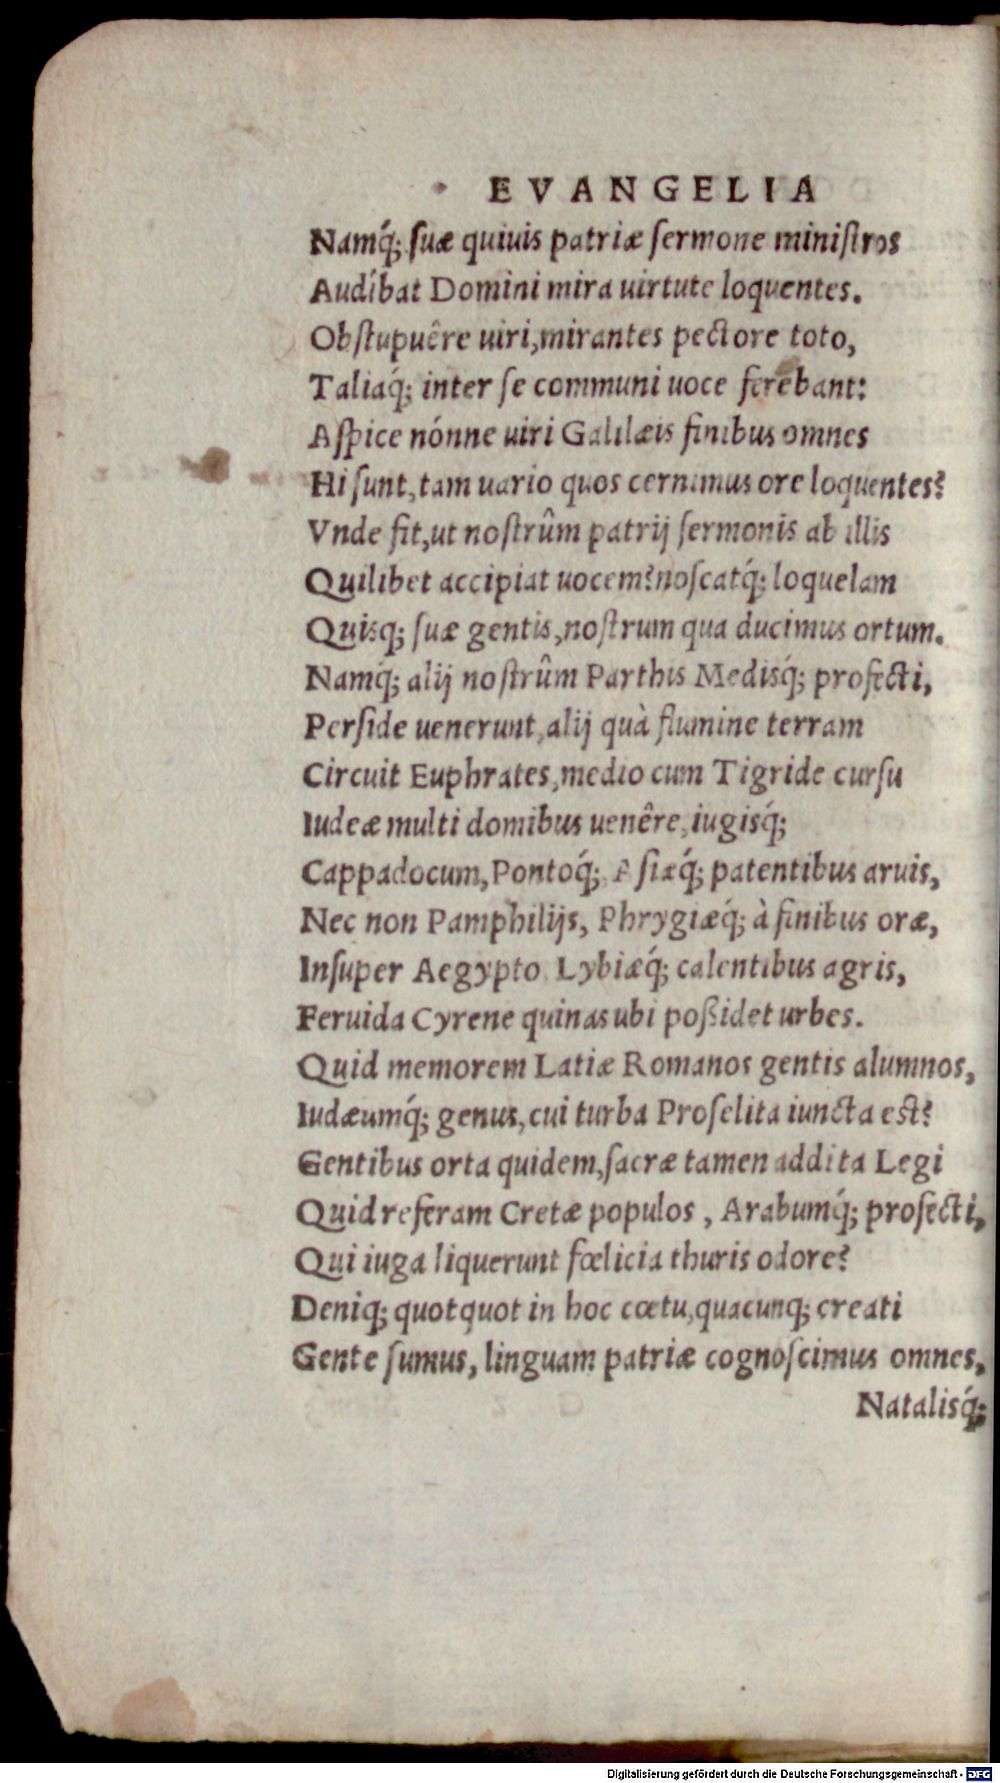 EVANGELIA
Namq́; suæ quiuis patriæ sermone ministros
Audíbat Domini mira uirtute loquentes.
Obstupuêre uiri, mirantes pectore toto,
Taliaq́; inter se communi uoce ferebant:
Aspice nónne uiri Galilæis finibus omnes
Hi sunt, tam uario quos cernimus ore loquentes?
Vnde fit, ut nostrûm patrij sermonis ab illis
Quilibet accipiat uocem? noscatq́; loquelam
Quisq; suæ gentis, nostrum qua ducimus ortum.
Namq́; alij nostrûm Parthis Medisq́; profecti,
Perside uenerunt, alij quà flumine terram
Circuit Euphrates, medio cum Tigride cursu
Iudeæ multi domibus uenêre, iugisq́;
Cappadocum, Pontoq́; Asiæq́; patentibus aruis,
Nec non Pamphilijs, Phrygiæq́; à finibus oræ,
Insuper Aegypto Lybiæq́; calentibus agris,
Feruida Cyrene quinas ubi poßidet urbes.
Quid memorem Latiæ Romanos gentis alumnos,
Iudæumq́; genus, cui turba Proselita iuncta est?
Gentibus orta quidem, sacræ tamen addita Legi
Quid referam Cretæ populos, Arabumq́; profecti,
Qui iuga liquerunt fœlicia thuris odore?
Deniq; quotquot in hoc cœtu, quacunq; creati
Gente sumus, linguam patriæ cognoscimus omnes,
Natalisq́;
Digitalisierung gefördert durch die Deutsche Forschungsgemeinschaft - DFG